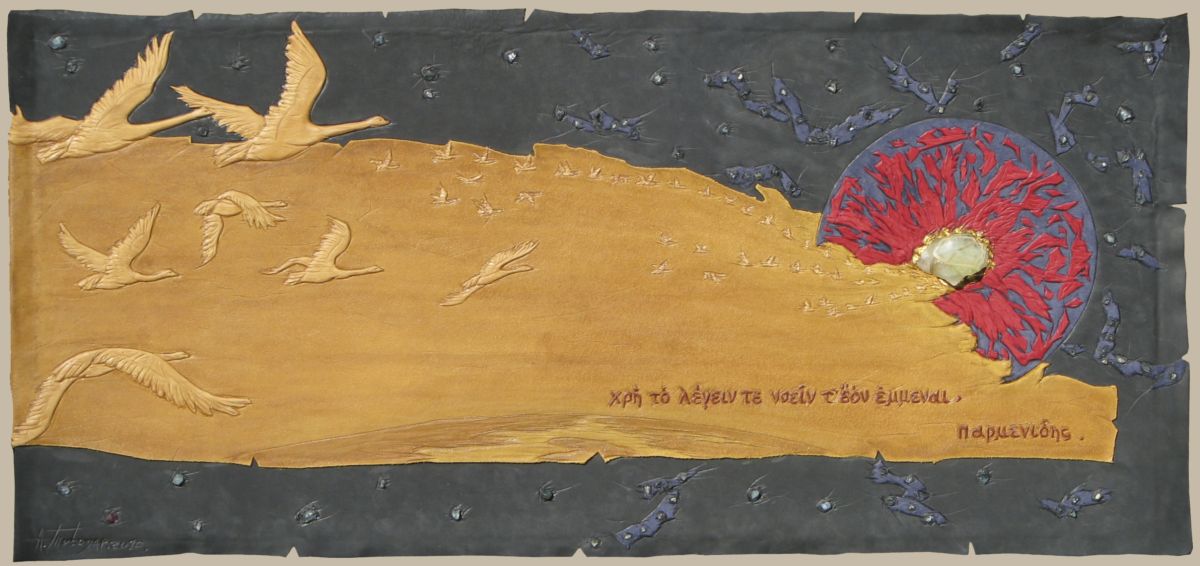 χρὴ τὸ λέγειν τε νοεῖν τ' ἐὸν ἔμμεναι,
παρμενιδης.